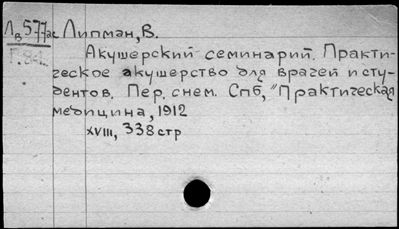 Лв577ас Липман, В.
Акушерский семинарий. Практи-
ческое акушерство для врачей и сту-
дентов. Пер. с нем. Спб, "Практическая
медицина, 1912
XVIII, 338 стр